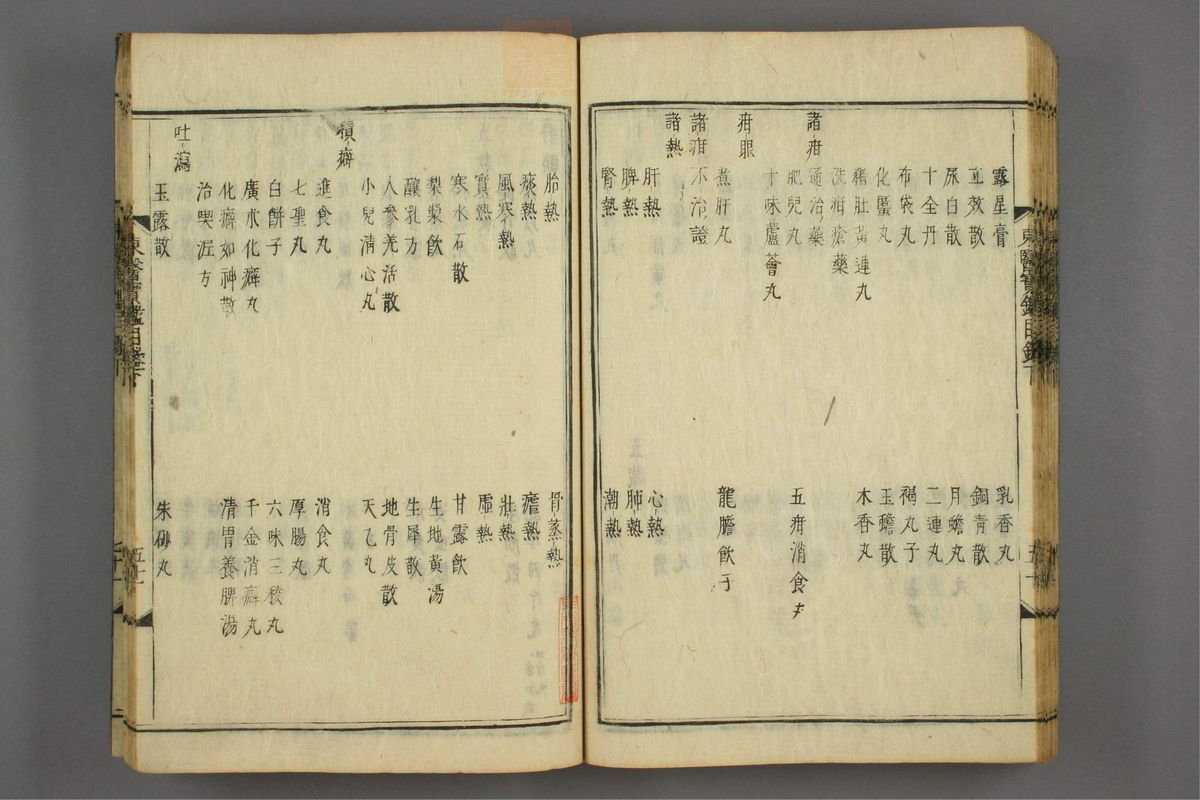 露星膏 乳香丸
立效散 銅青散
尿白散 月蟾丸
十全丹 二連丸
布袋丸 褐丸子
化䘌丸 玉蟾散
猪肚黃連丸 木香丸
洗疳瘡藥
諸疳 通治藥
肥兒丸 五疳消食丸
十味蘆薈丸
疳眼
煮肝丸 龍膽飲子
諸疳不治證
諸熱
肝熱 心熱
脾熱 肺熱
腎熱 潮熱
胎熱 骨蒸熱
痰熱 瘧熱
風寒熱 壯熱
實熱 虛熱
寒水石散 甘露飲
梨漿飲 生地黃湯
釀乳方 生犀散
人參羌活散 地骨皮散
小兒清心丸 天乙丸
積癖
進食丸 消食丸
七聖丸 厚腸丸
白餠子 六味三稜丸
廣朮化癖丸 千金消癖丸
化癖如神散 淸胃養脾湯
治喫泥方
吐瀉
玉露散 朱砂丸
東醫寶鑑目錄下